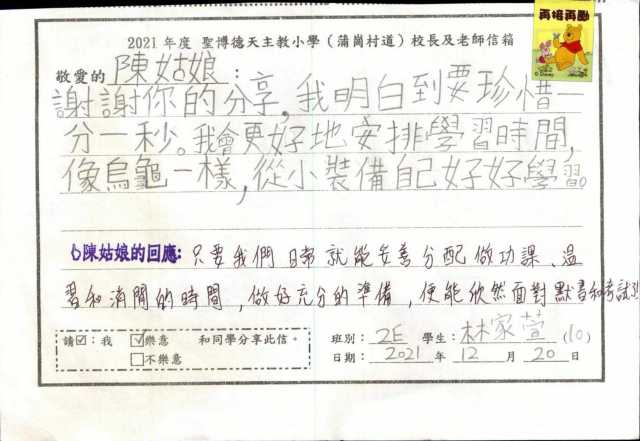 再接再勵
© Disney
2021 年度 聖博德天主教小學（蒲崗村道）校長及老師信箱
敬愛的 陳姑娘：
謝謝你的分享，我明白到要珍惜一
分一秒。我會更好地安排學習時間，
像烏龜一樣，從小裝備自己好好學習。
陳姑娘的回應: 只要我們日常就能妥善分配做功課、溫
習和消閒的時間，做好充分的準備，便能欣然面對默書和考試
請☑：我 ☑樂意 和同學分享此信。
□不樂意
班別： 2E 學生：林家萱 (10)
日期： 2021 年 12 月 20 日